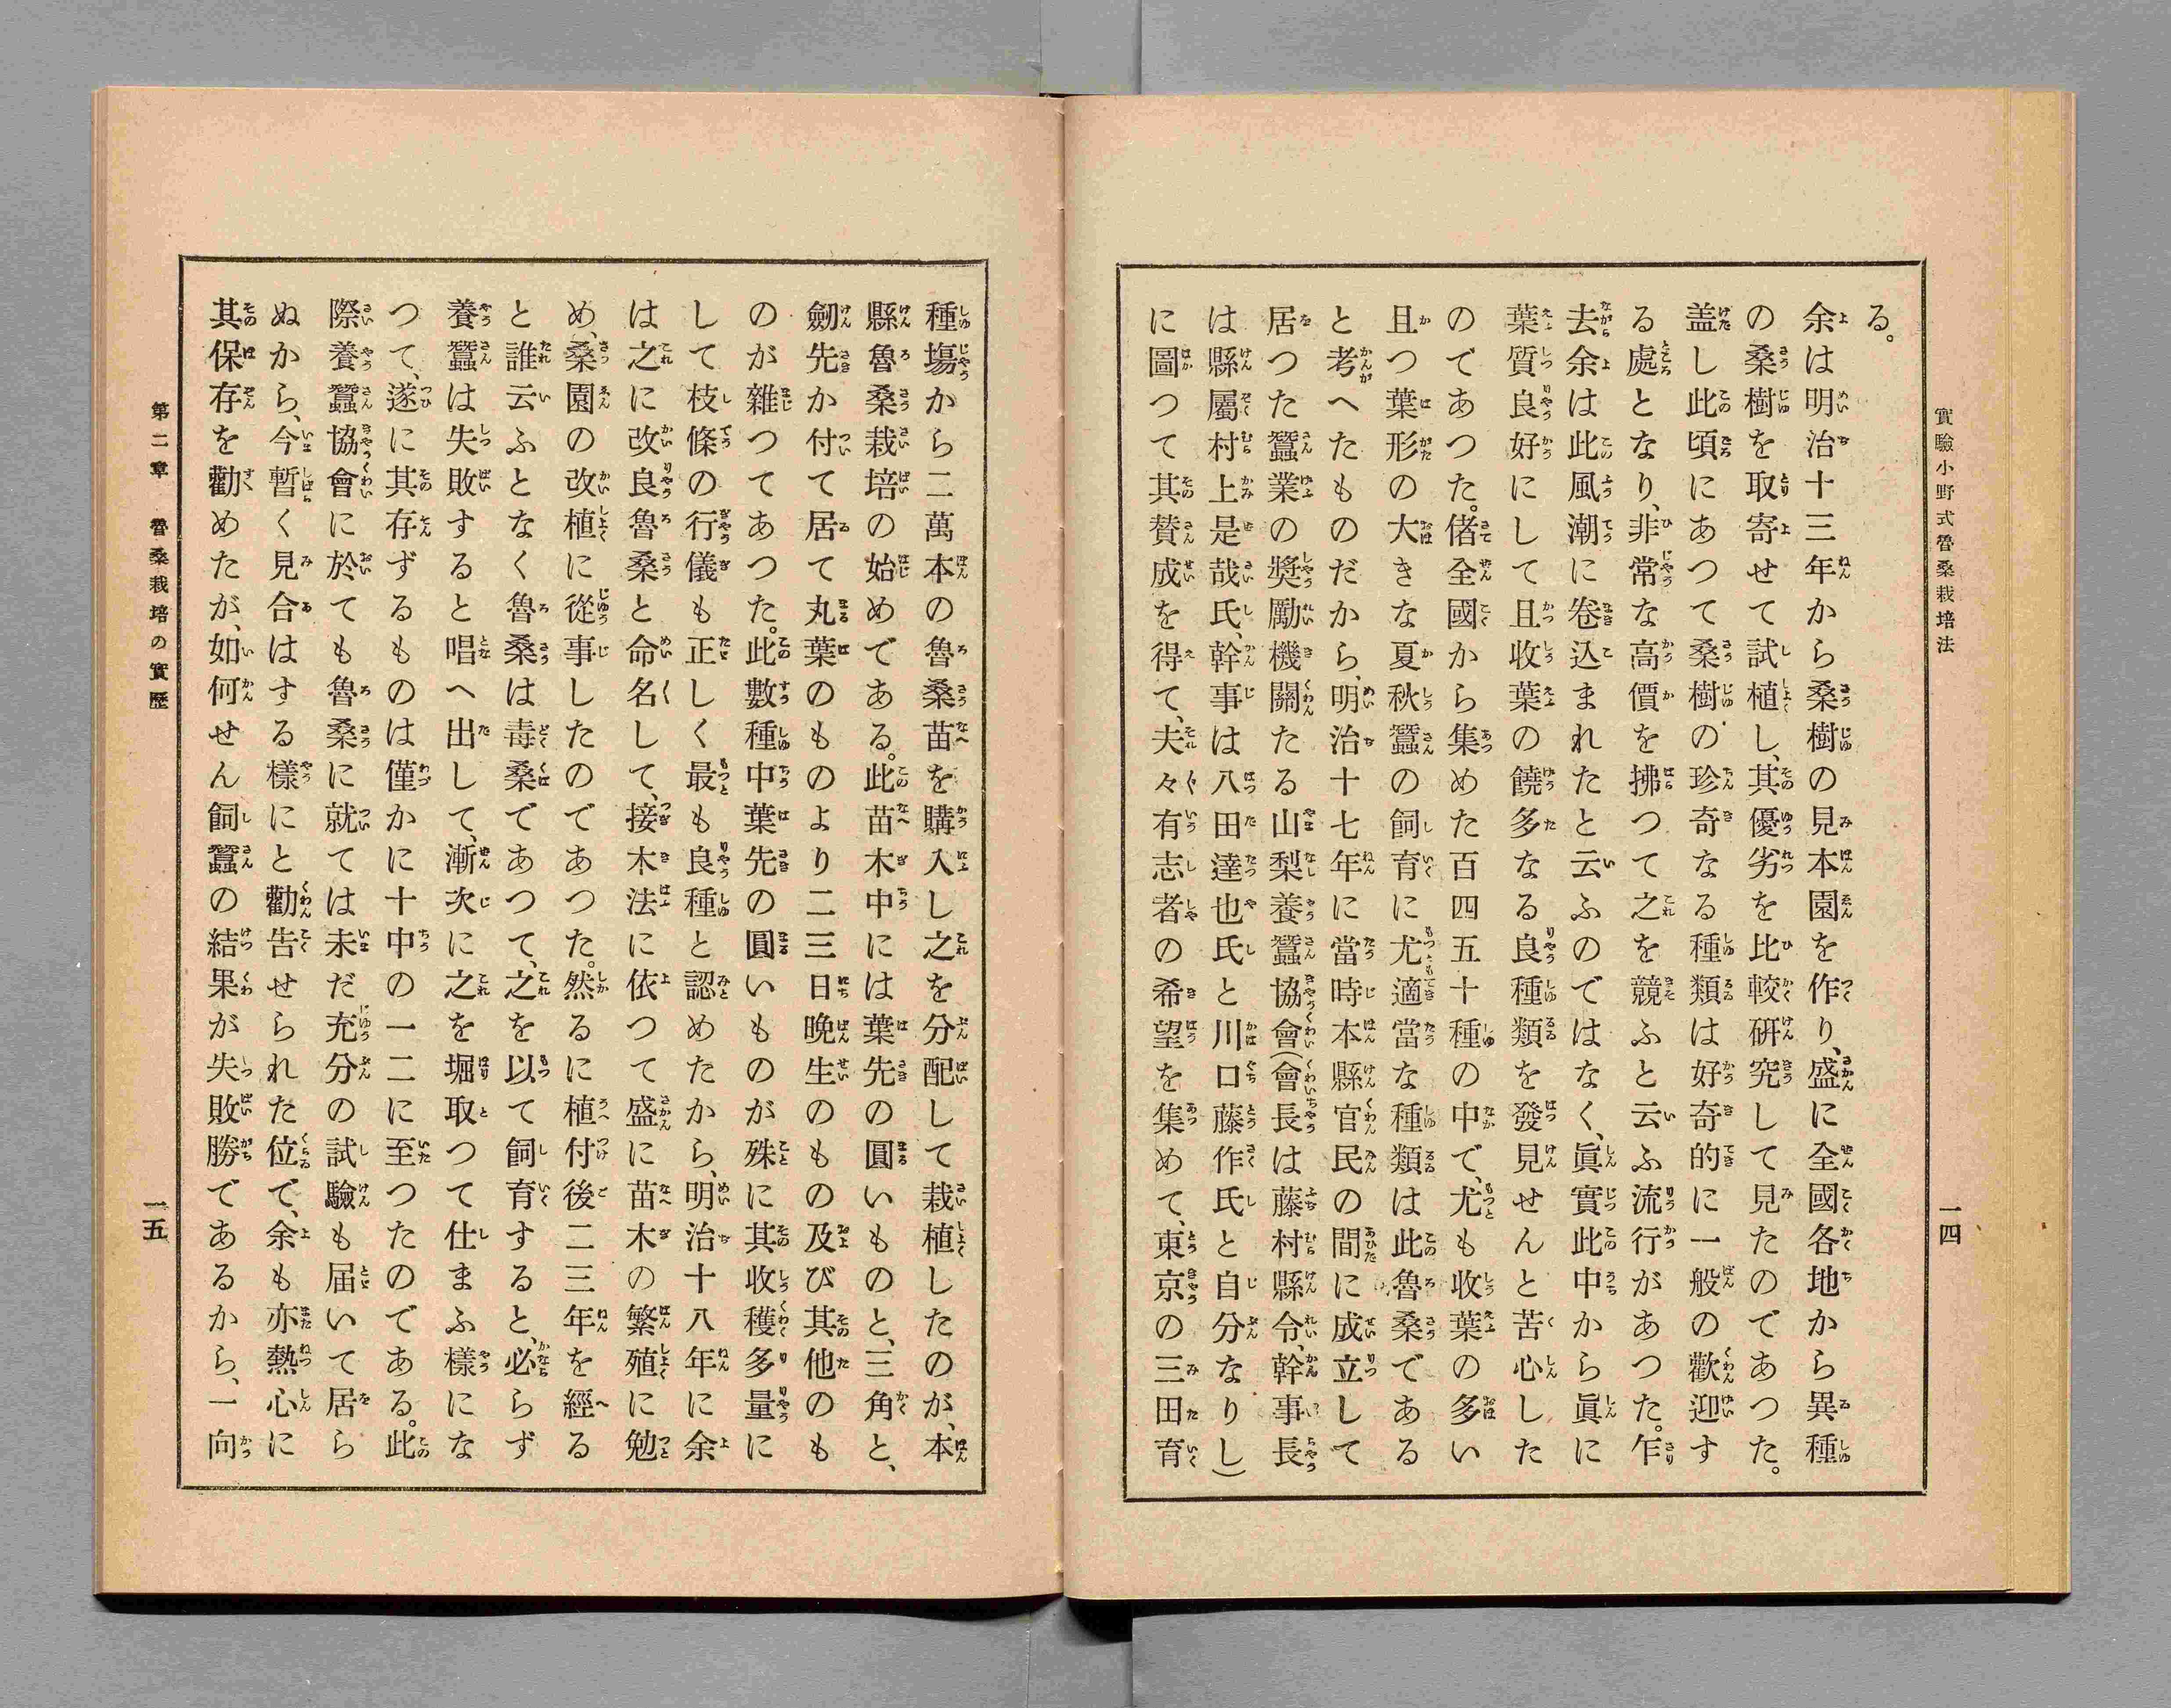 實驗小野式魯桑栽培法
一四
る。
余は明治十三年から桑樹の見本園を作り、盛に全國各地から異種
の桑樹を取寄せて試植し、其優劣を比較研究して見たのであつた。
盖し此頃にあつて桑樹の珍奇なる種類は好奇的に一般の歡迎す
る處となり、非常な高價を拂つて之を競ふと云ふ流行があつた。乍
去余は此風潮に卷込まれたと云ふのではなく、眞實此中から眞に
葉質良好にして且收葉の饒多なる良種類を發見せんと苦心した
のであつた。偖全國から集めた百四五十種の中で、尤も收葉の多い
且つ葉形の大きな夏秋蠶の飼育に尤適當な種類は此魯桑である
と考へたものだから、明治十七年に當時本縣官民の間に成立して
居つた蠶業の奬勵機關たる山梨養蠶協會(會長は藤村縣令、幹事長
は縣屬村上是哉氏、幹事は八田達也氏と川口藤作氏と自分なりし)
に圖つて其賛成を得て、夫々有志者の希望を集めて、東京の三田育
種塲から二萬本の魯桑苗を購入し之を分配して栽植したのが、本
縣魯桑栽培の始めである。此苗木中には葉先の圓いものと、三角と、
劒先か付て居て丸葉のものより二三日晩生のもの及び其他のも
のが雜つてあつた。此數種中葉先の圓いものが殊に其收穫多量に
して枝條の行儀も正しく最も良種と認めたから、明治十八年に余
は之に改良魯桑と命名して、接木法に依つて盛に苗木の繁殖に勉
め、桑園の改植に從事したのであつた。然るに植付後二三年を經る
と誰云ふとなく魯桑は毒桑であつて、之を以て飼育すると、必らず
養蠶は失敗すると唱へ出して、漸次に之を堀取つて仕まふ樣にな
つて、遂に其存ずるものは僅かに十中の一二に至つたのである。此
際養蠶協會に於ても魯桑に就ては未だ充分の試驗も届いて居ら
ぬから、今暫く見合はする樣にと勸告せられた位で、余も亦熱心に
其保存を勸めたが、如何せん飼蠶の結果が失敗勝であるから、一向
第二章　魯桑栽培の實歷
一五